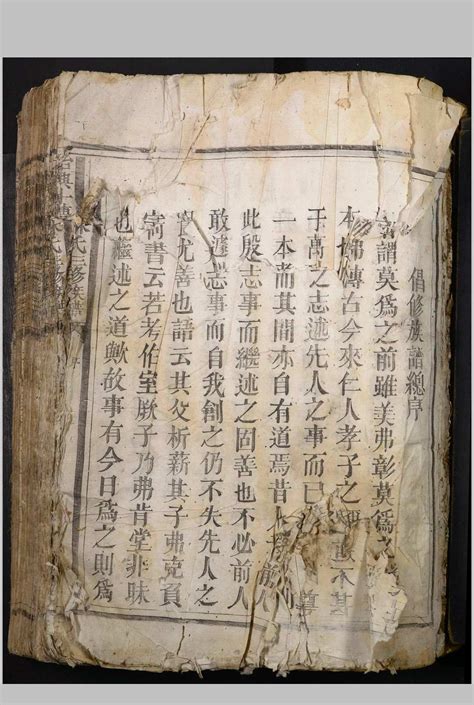 倡修族譜總序
謂莫爲之前雖美弗彰莫爲之
本 傳古今來仁人孝子之 不其
于萬之志述先人之事而已
一本者其間亦自有道焉昔 前人
此殷志事而繼述之固善也不必前人
敢遽 志事而自我創之仍不失先人之
尤善也語云其父析薪其子弗克負
書云若考作室厥子乃弗肯堂非昧
也繼述之道歟故事有今日爲之則爲
氏 修族譜 序